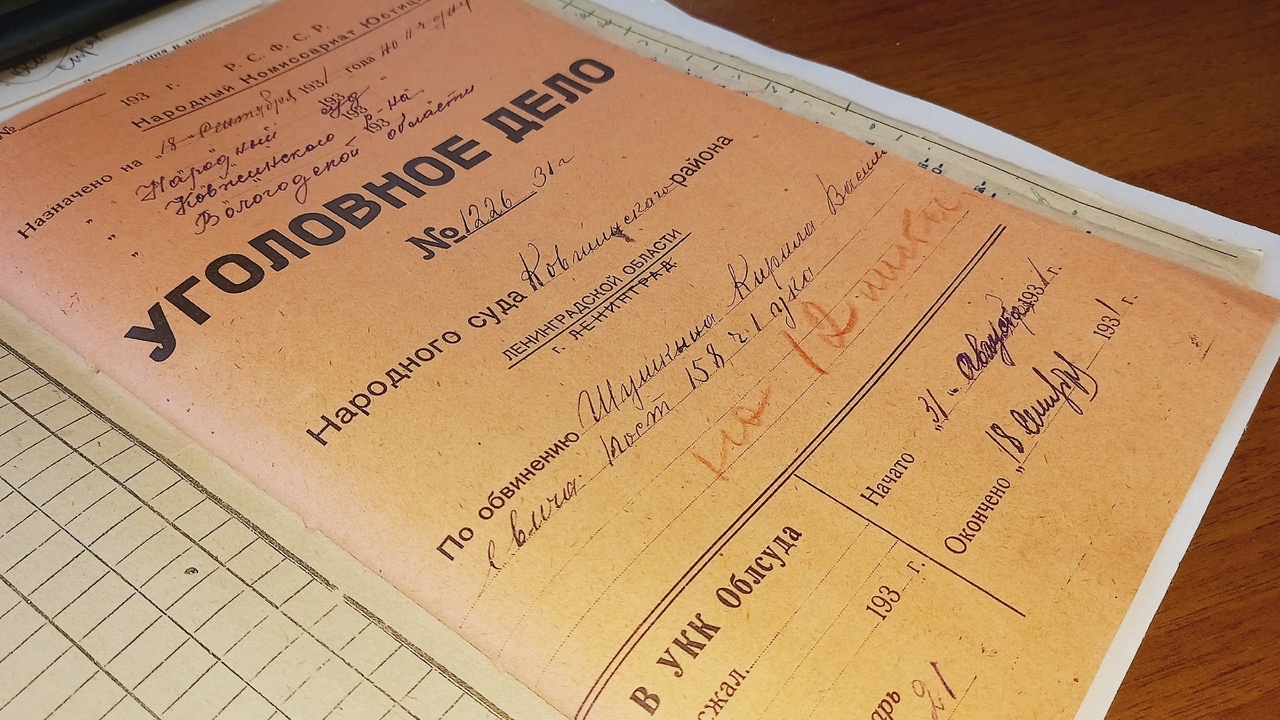 193 г. Р. С. Ф. С. Р.
Народный Комиссариат Юстиц
№
Назначено на „18 сентября 1931 года
„ Народный суд 193
„ Ковжинского р-на 193
Вологодской области 193
УГОЛОВНОЕ ДЕЛО
№ 1226 31 г
Народного суда Ковжинского района
ЛЕНИНГРАДСКОЙ ОБЛАСТИ
г. ЛЕНИНГРАД.
По обвинению Шушкина Кирила Васили
евича по ст 158 ч. 1 ука
на 12
Начато „31„ августа 1931 г.
Окончено „18 сентября 1931 г.
В УКК Облсуда
193 г.
сжал.
арь 21